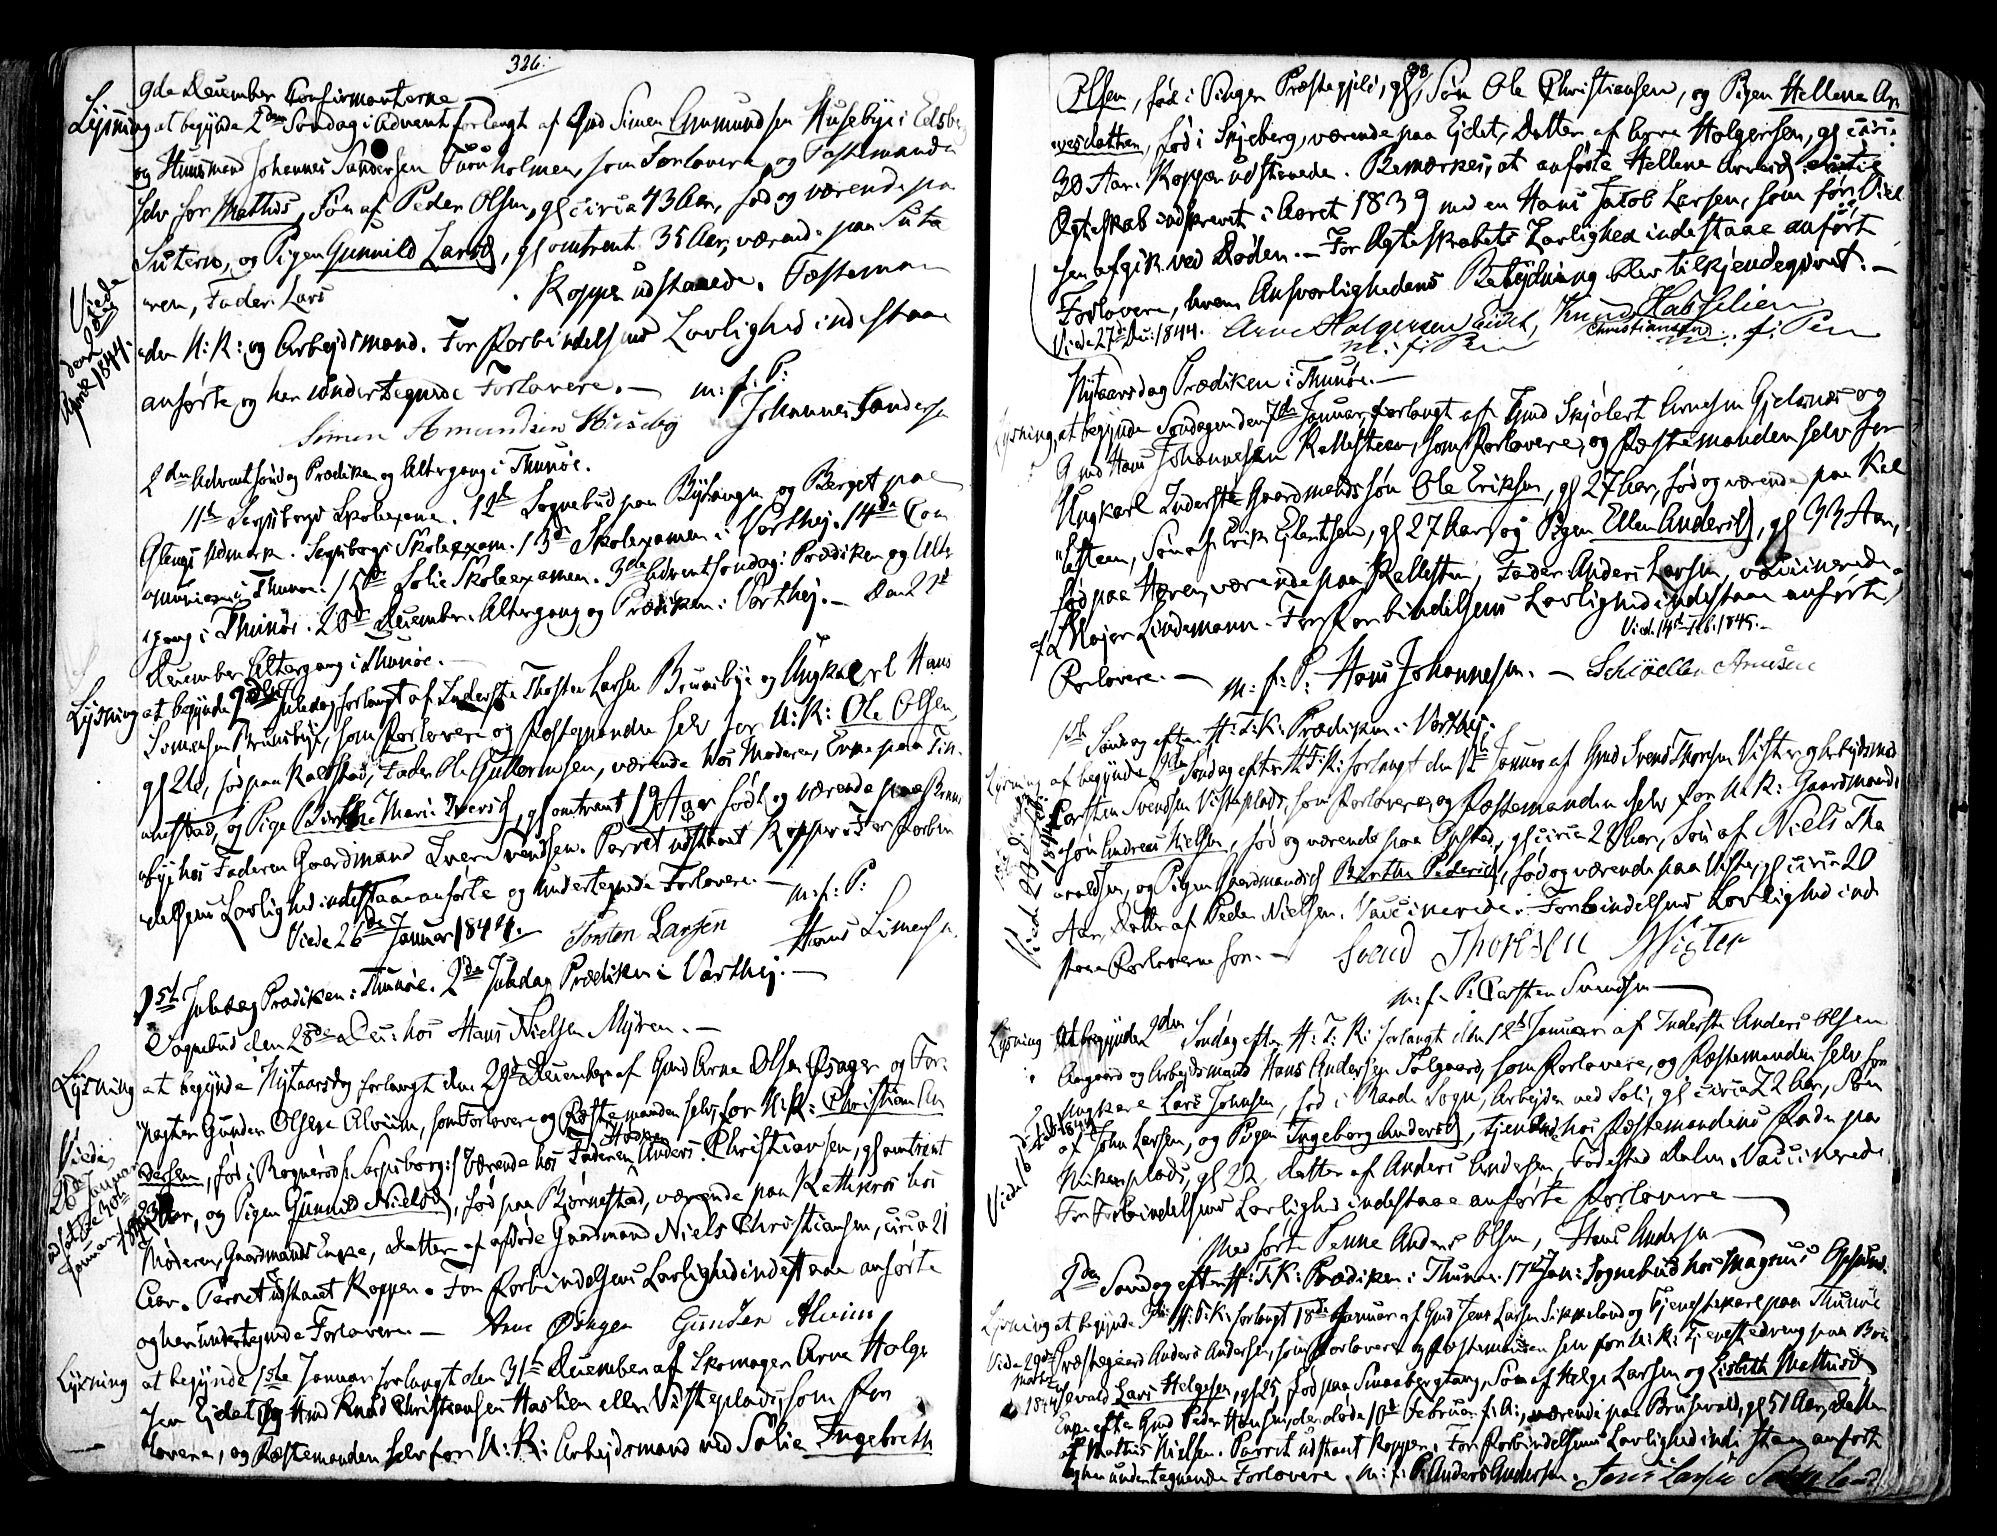 326.
9de December Confirmanterne
Lysning at begynde 2den Søndag i Advent forlangt af Gmd Simen Amundsen Huusebye i Eidsberg
og Huusmand Johannes Sandersen Tuneholmen, som Forlovere, og Fæstemanden
selv for Mathis, Søn af Peder Olsen, gl circa 43 Aar, fød og værende paa
Sutern, og Pigen Gunnild Larsd, gl omtrent 35 Aar, værende paa Sute
ren, Fader Lars . Kopper udstaaede. Fæsteman
den U: K: og Arbeidsmand. For Forbindelsens Lovlighed indestaae
anførte og her undertegnede Forlovere. — m: f: P:
Simen Amundsen Huseby Johannes Sandersen
Viede den April 1844.
2den Adventsøndag Prædiken og Altergang i Thunøe.
11te Sarpsborgs Skolexamen. 12te Sognebud paa og Berget paa
Glengs Udmark. Sarpsborgs Skoleexam. 13de Skolexamen i Varthej. 14de Com
i Thunøe. 15de Solie Skoleexamen. 3die Adventsøndag: Prædiken og Alter
gang i Thunøe. 20de December Altergang og Prædiken i Varthej. — Den 22de
December Altergang i Thunøe. —
Lysning at begynde 2den Juledag forlangt af Inderste Thosten Larsen Brunsbye og Ungkarl Hans
Simensen Brunsbye, som Forlovere og Fæstemanden selv for U: K: Ole Olsen,
gl 26, fød paa Kalstad, Fader Ole Guttormsen, værende hos Moderen, Enke paa Fin
nestad, og Pige Birthe Marie Iversd, gl omtrent 19 Aar født og værende paa Bruns
bye hos Faderen Gaardmand Iver Svendsen. Parret udstaaet Kopper. For Forbin
delsens Lovlighed indestaae anførte og undertegnede Forlovere. — m: f: P:
Viede 26de Januar 1844. Torsten Larsen Hans Simensen.
1ste Juledag Prædiken i Thunøe. 2den Juledag Prædiken i Varthej. —
Sognebud den 28de Dec: hos Hans Nielsen Myren. —
Lysning at begynde Nytaarsdag forlangt den 29de December af Gmd Arne Olsen Øsager og For
pagter Gunder Olsen Alvim, som Forlovere og Fæstemanden selv for U: K: Christian An
dersen, fød i Rognerød i Sarpsborg :/ værende hos Faderen Anders Christiansen, gl omtrent
23 Aar, og Pigen Gunild Nielsd, fød paa Bjørnestad, værende paa hos
Moderen, Gaardmands Enke, Datter af afdøde Gaardmand Niels Christiansen, circa 21
Aar. Parret udstaaet Kopper. For Forbindelsens Lovlighed indestaae anførte
og her undertegnede Forlovere. — Arne Øsager Gunder Alvim
Viede 26de Januar
udsat til 30te
Januar 1844
Lysning at begynde 1ste Januar forlangt den 31te December af Skomager Arne Holge
sen Ejdet og Hmd Knud Christiansen Haslien eller Visteplads, som For
lovere, og Fæstemanden selv for U: K: Arbejdsmand ved Solie Ingebreth
Olsen, fød i Ringen Præstegjeld, gl 28, Søn Ole Christiansen, og Pigen Hellene Ar
nesdatter, fød i Skjeberg, værende paa Ejdet, Datter af Arne Holgersen, gl circa
30 Aar. Kopper udstaaede. Bemærkes, at anførte Hellene Arnesd
Ægteskab indskrevet i Aaret 1839 med en Hans Jacob Larsen, som før Viel
sen afgik ved Døden. — For Ægteskabets Lovlighed indestaae anførte
Forlovere, hvem Ansvarlighedens Betydning blev tilkjendegivet. —
Viede 27de Dec: 1844. Arne Holgersen Eidet, Knud Christiansen Hasselien
m: f: Pen m: f: Pen
Nytaarsdag Prædiken i Thunøe. —
Lysning, at begynde Søndagen den 7de Januar, forlangt af Gmd Skjølert Arnesen Gjelsnes og
Gmd Hans Johannesen Kallesteen, som Forlovere, og Fæstemanden selv for
Ungkarl Inderste Gaardmandssøn Ole Eriksen, gl 27 Aar, fød og værende paa Kal
lesteen, Søn af Erik Ejlertsen, gl 27 Aar, og Pigen Ellen Andersd, gl 33 Aar,
fød paa Haren, værende paa Kallesten, Fader Anders Larsen, vaccinerede
af Major Lindemann. For Forbindelsens Lovlighed indestaae anførte
Forlovere. — m: f: P: Hans Johannesen. — Schiøllert Arnesen
Vied. 14de Feb. 1845. —
1ste Søndag efter H: 3: K: Prædiken i Varthej.
Lysning at begynde 2den Søndag efter H: 3: K: forlangt den 12te Januar af Gmd Svend Thorsen Vister og Arbejdsmd
Carsten Svendsen Visteplads, som Forlovere, og Fæstemanden selv for U: K: Gaardmands
søn Andreas Nielsen, fød og værende paa Opstad, gl circa 28 Aar, Søn af Niels Tha
raldsen, og Pigen Gaardmandsd Birthe Pedersd, fød og værende paa Viste, gl circa 20
Aar, Datter af Peder Nielsen. Vaccinerede. Forbindelsens Lovlighed inde
staae Forloverne for. — Svend Thorsen Wister
m: f: P: Carsten Svendsen —
Lysning At begynde 2den Søndag efter H: 3: K: forlangt den 12te Januar af Inderste Anders Olsen
Aagaard og Arbejdsmand Hans Andersen Solgaard, som Forlovere, og Fæstemanden selv for
Ungkarl Lars Johnsen, fød i Raade Sogn, Arbejder ved Soli, gl circa 22 Aar, Søn
af John Larsen, og Pigen Ingeborg Andersd, tjenende hos Fæstemandens Fader paa
Mikkersplads, gl 22, Datter af Anders Andersen, Fødested Dalen. Vaccinerede.
For Forbindelsens Lovlighed indestaae anførte Forlovere —
Med førte Penne Anders Olsen, Hans Andersen
2den Søndag efter H: 3: K: Prædiken i Thunøe. 17de Jan: Sognebud hos Magnus Opsund.
Lysning at begynde 3die H: 3: K: forlangt 18de Januar af Gmd Jens Larsen Sikkeland og Tjenestekarl paa Thunøe
Præstegaard Anders Andersen, som Forlovere og Fæstemanden selv for U: K: Tjenestedreng paa Bru
sevald Lars Helgesen, gl 25, fød paa Smaabergtang, Søn af Helge Larsen og Lisbeth Mathisd,
Enke efter Gmd Peder Hansen, der døde 10de Februar f: A:, værende paa Brusevald, gl 51 Aar, Datter
af Mathis Nielsen. Parret udstaaet Kopper. For Forbindelsens Lovlighed indestaae anførte
og her undertegnende Forlovere. m: f: P: Anders Andersen. Jens Larsen Sikkeland
Viede 29de
Martz
1844